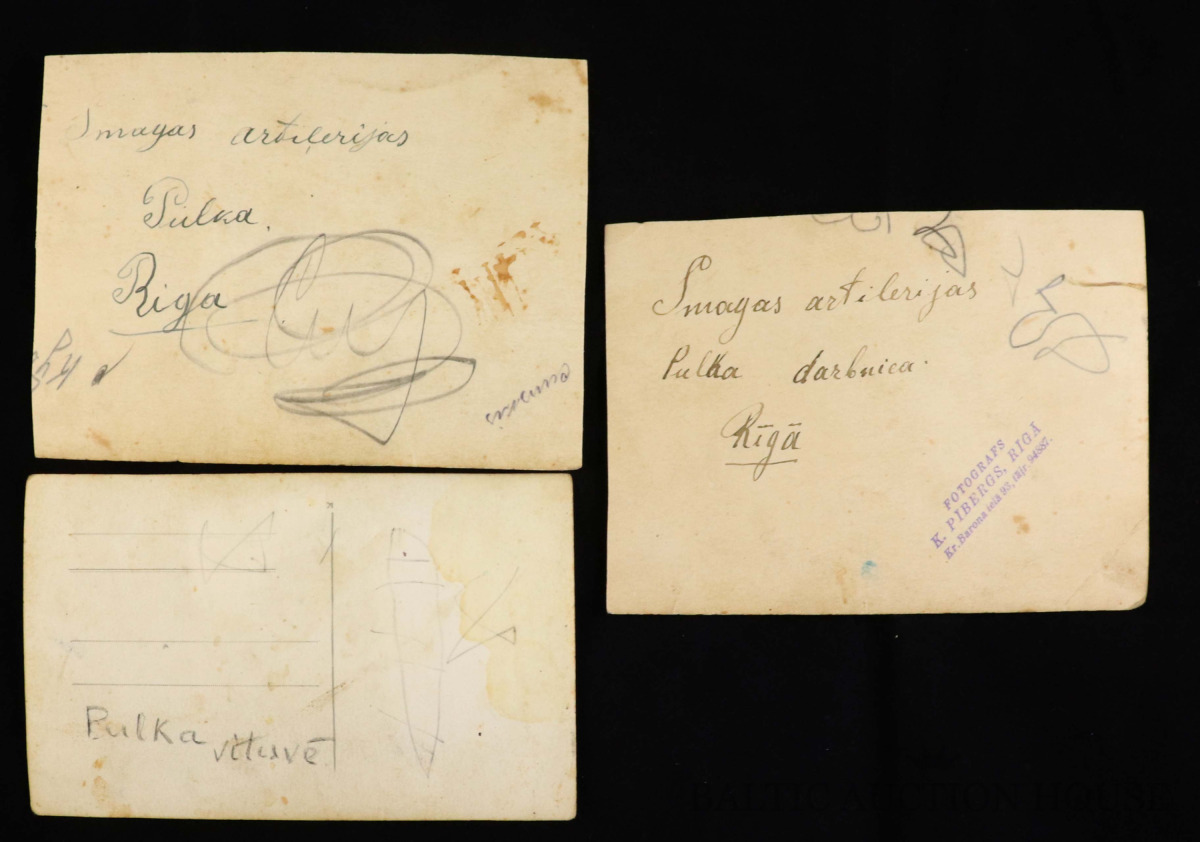 Smagas artiļerijas
Pulka.
Riga
Smagas artilerijas
Pulka darbnica.
Rīgā
FOTOGRAFS
K. PIBERGS, RIGĀ
Kr. Barona ielā 93, tālr. 94887.
Pulka
BALTIC AUCTION HOUSE